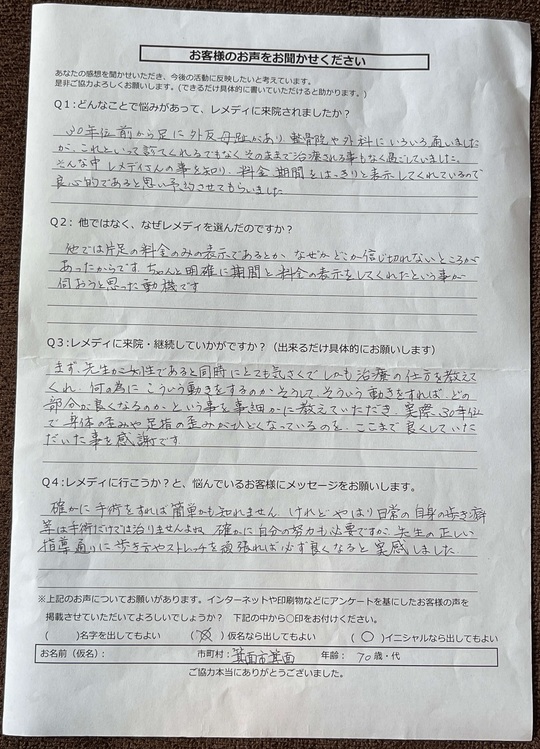 お客様のお声をお聞かせください
あなたの感想を聞かせいただき、今後の活動に反映したいと考えています。
是非ご協力よろしくお願いします。(できるだけ具体的に書いていただけると助かります。)
Q1:どんなことで悩みがあって、レメディに来院されましたか?
30年位前から足に外反母趾があり 整骨院や外科にいろいろ通いました
が、これといって診てくれるでもなくそのままで治療される事もなく過ごしていました。
そんな中レメディさんの事を知り、料金期間をはっきりと表示してくれているので
良心的であると思い予約させてもらいました
Q2:他ではなく、なぜレメディを選んだのですか?
他では片足の料金のみの表示であるとか なぜかどこか信じ切れないところが
あったからです。ちゃんと明確に期間と料金の表示をしてくれたという事が
伺おうと思った動機です
Q3:レメディに来院・継続していかがですか?(出来るだけ具体的にお願いします)
まず、先生が女性であると同時にとても気さくで しかも治療の仕方を教えて
くれ、何の為に こういう動きをするのか そうして、そういう動きをすれば、どの
部分が良くなるのか という事を事細かに教えていただき、実際、30年位
で身体の歪みや足指の歪みがひどくなっているのを、ここまで良くしていた
だいた事を感謝です
Q4:レメディに行こうか?と、悩んでいるお客様にメッセージをお願いします。
確かに手術をすれば簡単かも知れません けれど やはり日常の自身の歩き癖
等は手術だけでは治りませんよね 確かに自分の努力も必要ですが、先生の正しい
指導通りに 歩き方やストレッチを頑張れば必ず良くなると 実感しました
※上記のお声についてお願いがあります。インターネットや印刷物などにアンケートを基にしたお客様の声を
掲載させていただいてよろしいでしょうか? 下記の中から○印をお付けください。
( )名字を出してもよい ( ○ )仮名なら出してもよい ( ○ )イニシャルなら出してもよい
お名前(仮名): 市町村: 箕面市箕面 年齢: 70 歳・代
ご協力本当にありがとうございました。